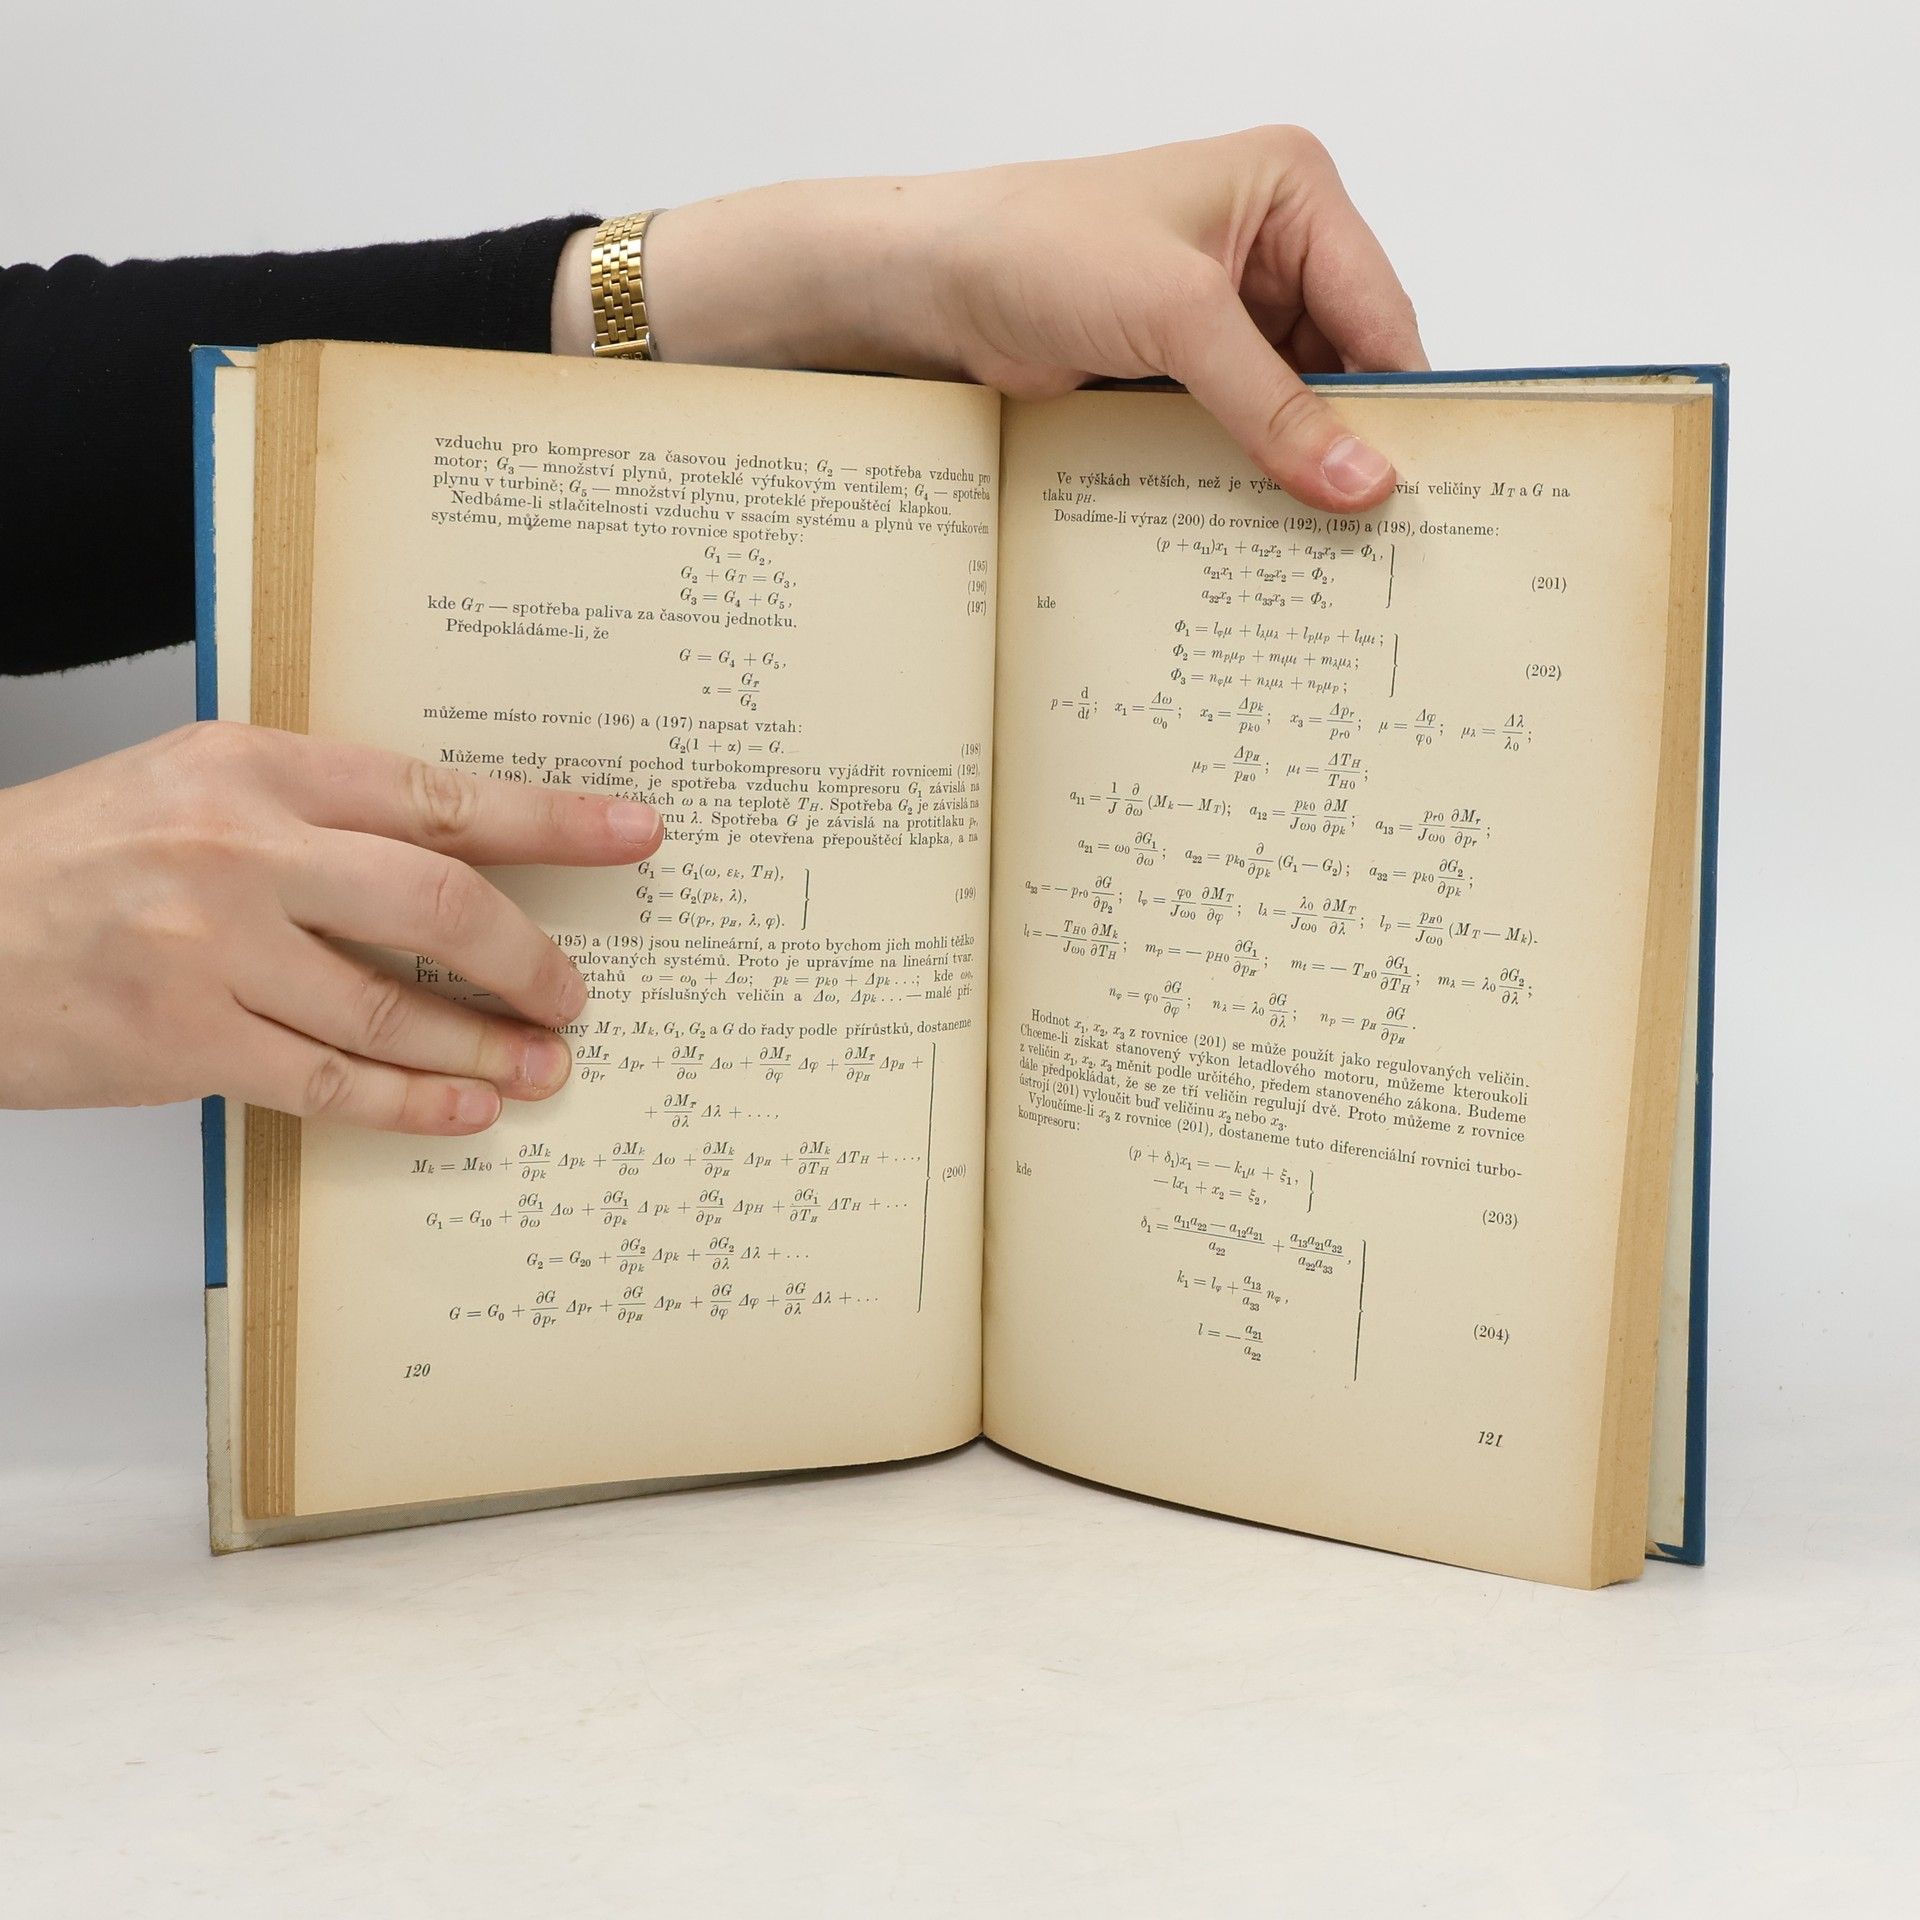 vzduchu pro kompresor za časovou jednotku; G₂ — spotřeba vzduchu pro
motor; G₃ — množství plynů, proteklé výfukovým ventilem; G₄ — spotřeba
plynu v turbině; G₅ — množství plynu, proteklé přepouštěcí klapkou.
Nedbáme-li stlačitelnosti vzduchu v ssacím systému a plynů ve výfukovém
systému, můžeme napsat tyto rovnice spotřeby:
G₁ = G₂, (195)
G₂ + G_T = G₃, (196)
G₃ = G₄ + G₅, (197)
kde G_T — spotřeba paliva za časovou jednotku.
Předpokládáme-li, že
G = G₄ + G₅,
α = G_T / G₂
můžeme místo rovnic (196) a (197) napsat vztah:
G₂(1 + α) = G. (198)
Můžeme tedy pracovní pochod turbokompresoru vyjádřit rovnicemi (192),
(198). Jak vidíme, je spotřeba vzduchu kompresoru G₁ závislá na
ω a na teplotě T_H. Spotřeba G₂ je závislá na
λ. Spotřeba G je závislá na protitlaku p_r,
kterým je otevřena přepouštěcí klapka, a na
G₁ = G₁(ω, ε_k, T_H),
G₂ = G₂(p_k, λ), (199)
G = G(p_r, p_H, λ, φ).
(195) a (198) jsou nelineární, a proto bychom jich mohli těžko
regulovaných systémů. Proto je upravíme na lineární tvar.
Při ω = ω₀ + Δω; p_k = p_k0 + Δp_k ...; kde ω₀,
... — příslušných veličin a Δω, Δp_k ... — malé pří-
M_T, M_k, G₁, G₂ a G do řady podle přírůstků, dostaneme
∂M_T/∂p_r Δp_r + ∂M_T/∂ω Δω + ∂M_T/∂φ Δφ + ∂M_T/∂p_H Δp_H +
+ ∂M_T/∂λ Δλ + ...,
M_k = M_k0 + ∂M_k/∂p_k Δp_k + ∂M_k/∂ω Δω + ∂M_k/∂p_H Δp_H + ∂M_k/∂T_H ΔT_H + ..., (200)
G₁ = G₁₀ + ∂G₁/∂ω Δω + ∂G₁/∂p_k Δp_k + ∂G₁/∂p_H Δp_H + ∂G₁/∂T_H ΔT_H + ...
G₂ = G₂₀ + ∂G₂/∂p_k Δp_k + ∂G₂/∂λ Δλ + ...
G = G₀ + ∂G/∂p_r Δp_r + ∂G/∂p_H Δp_H + ∂G/∂φ Δφ + ∂G/∂λ Δλ + ...
120
Ve výškách větších, než je veličiny M_T a G na
tlaku p_H.
Dosadíme-li výraz (200) do rovnice (192), (195) a (198), dostaneme:
(p + a₁₁)x₁ + a₁₂x₂ + a₁₃x₃ = Φ₁,
a₂₁x₁ + a₂₂x₂ = Φ₂, (201)
a₃₂x₂ + a₃₃x₃ = Φ₃,
kde
Φ₁ = l_φμ + l_λμ_λ + l_pμ_p + l_tμ_t;
Φ₂ = m_pμ_p + m_tμ_t + m_λμ_λ; (202)
Φ₃ = n_φμ + n_λμ_λ + n_pμ_p;
p = d/dt; x₁ = Δω/ω₀; x₂ = Δp_k/p_k0; x₃ = Δp_r/p_r0; μ = Δφ/φ₀; μ_λ = Δλ/λ₀;
μ_p = Δp_H/p_H0; μ_t = ΔT_H/T_H0;
a₁₁ = 1/J ∂/∂ω (M_k — M_T); a₁₂ = p_k0/Jω₀ ∂M/∂p_k; a₁₃ = p_r0/Jω₀ ∂M_r/∂p_r;
a₂₁ = ω₀ ∂G₁/∂ω; a₂₂ = p_k0 ∂/∂p_k (G₁ — G₂); a₃₂ = p_k0 ∂G₂/∂p_k;
a₃₃ = — p_r0 ∂G/∂p₂; l_φ = φ₀/Jω₀ ∂M_T/∂φ; l_λ = λ₀/Jω₀ ∂M_T/∂λ; l_p = p_H0/Jω₀ (M_T — M_k).
l_t = — T_H0/Jω₀ ∂M_k/∂T_H; m_p = — p_H0 ∂G₁/∂p_H; m_t = — T_H0 ∂G₁/∂T_H; m_λ = λ₀ ∂G₂/∂λ;
n_φ = φ₀ ∂G/∂φ; n_λ = λ₀ ∂G/∂λ; n_p = p_H ∂G/∂p_H.
Hodnot x₁, x₂, x₃ z rovnice (201) se může použít jako regulovaných veličin.
Chceme-li získat stanovený výkon letadlového motoru, můžeme kteroukoli
z veličin x₁, x₂, x₃ měnit podle určitého, předem stanoveného zákona. Budeme
dále předpokládat, že se ze tří veličin regulují dvě. Proto můžeme z rovnice
ústrojí (201) vyloučit buď veličinu x₂ nebo x₃.
Vyloučíme-li x₃ z rovnice (201), dostaneme tuto diferenciální rovnici turbo-
kompresoru:
(p + δ₁)x₁ = — k₁μ + ξ₁,
— lx₁ + x₂ = ξ₂, (203)
kde
δ₁ = (a₁₁a₂₂ — a₁₂a₂₁)/a₂₂ + a₁₃a₂₁a₃₂/a₂₂a₃₃,
k₁ = l_φ + a₁₃/a₃₃ n_φ, (204)
l = — a₂₁/a₂₂
121